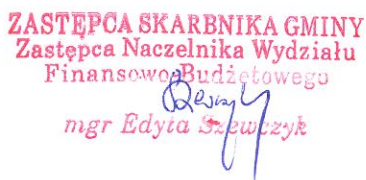 ZASTĘPCA SKARBNIKA GMINY
Zastępca Naczelnika Wydziału
Finansowo-Budżetowego
mgr Edyta Szewczyk